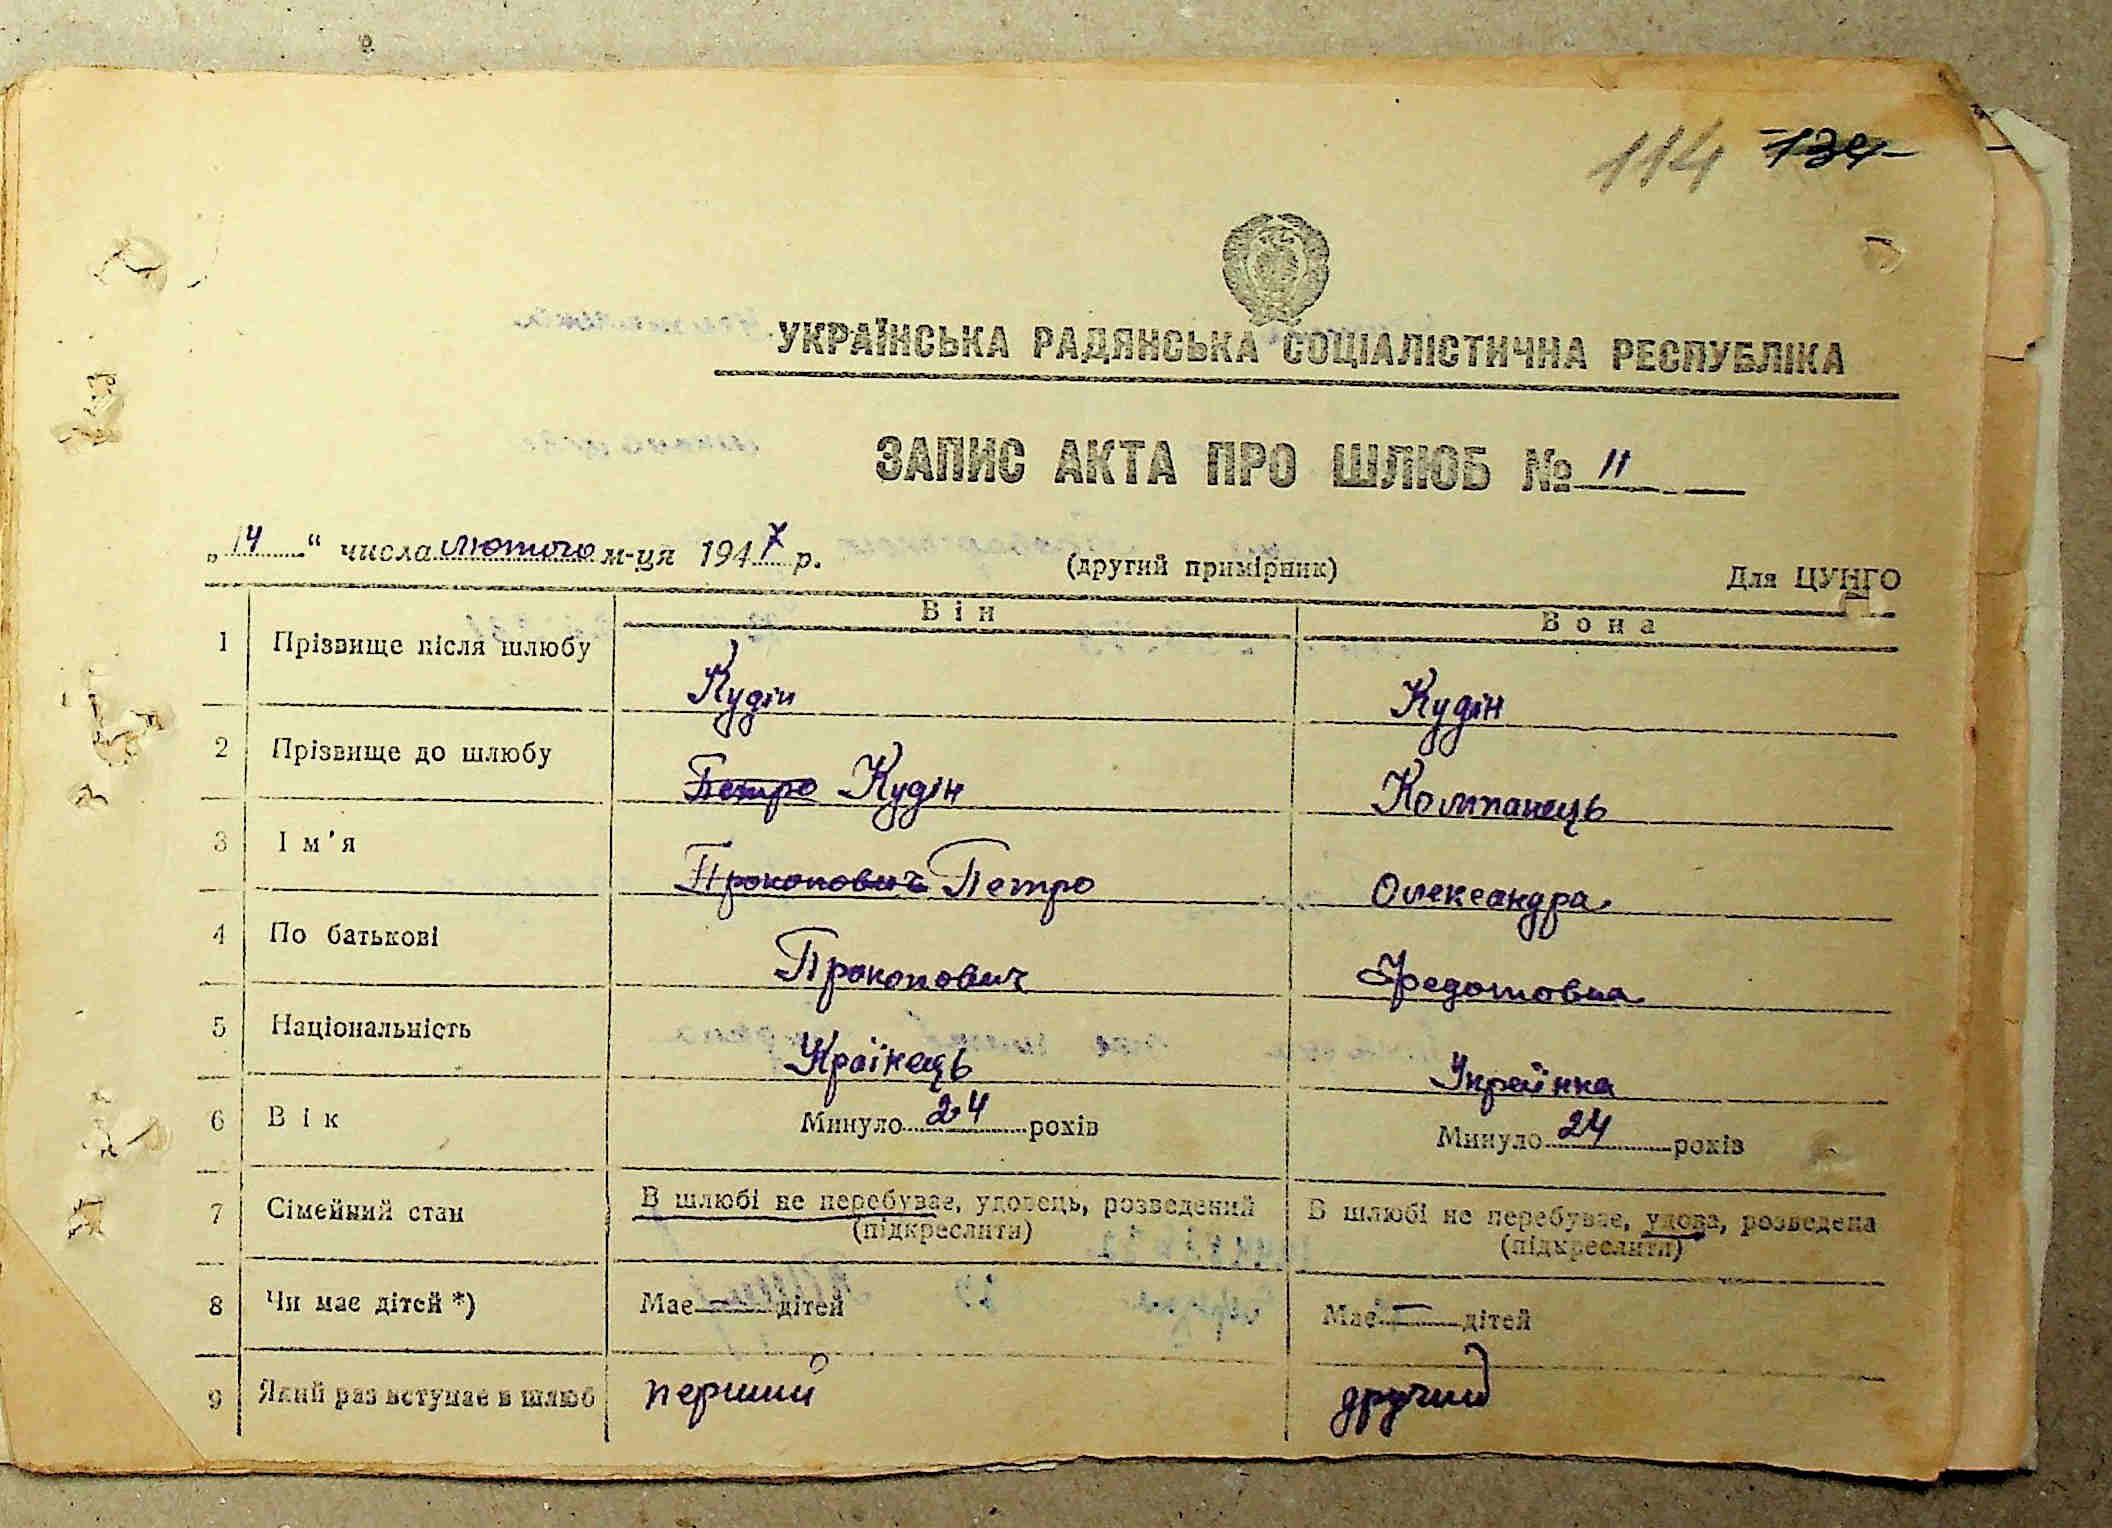 114 134
УКРАЇНСЬКА РАДЯНСЬКА СОЦІАЛІСТИЧНА РЕСПУБЛІКА
ЗАПИС АКТА ПРО ШЛЮБ № 11
„14“ числа лютого м-ця 1947 р. (другий примірник) Для ЦУНГО
Він Вона
1 Прізвище після шлюбу Кудін Кудін
2 Прізвище до шлюбу Петро Кудін Компанець
3 Ім'я Прокопович Петро Олександра
4 По батькові Прокопович Федотовна
5 Національність Українець Українка
6 Вік Минуло 24 років Минуло 24 років
7 Сімейний стан В шлюбі не перебуває, удовець, розведений В шлюбі не перебуває, удова, розведена
(підкреслити) (підкреслити)
8 Чи має дітей *) Має — дітей Має — дітей
9 Який раз вступає в шлюб перший другий